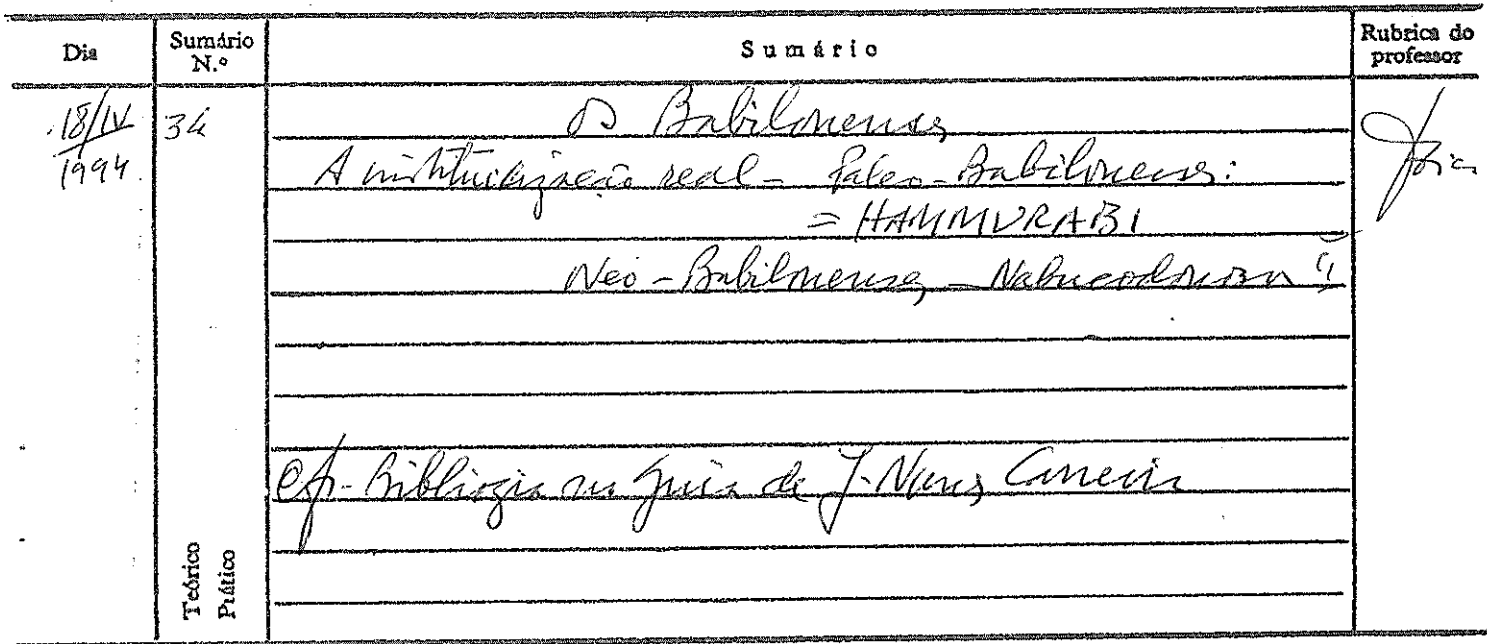 Dia Sumário N.º Sumário Rubrica do professor
18/IV 34 Os Babilonenses
1994. A institucionização real - Paleo-Babilonenses:
= HAMMURABI
Neo-Babilonenses - Nabucodonosor II
Cfr. Bibliogia no guia de J. Nunes Carreira
Teórico
Prático